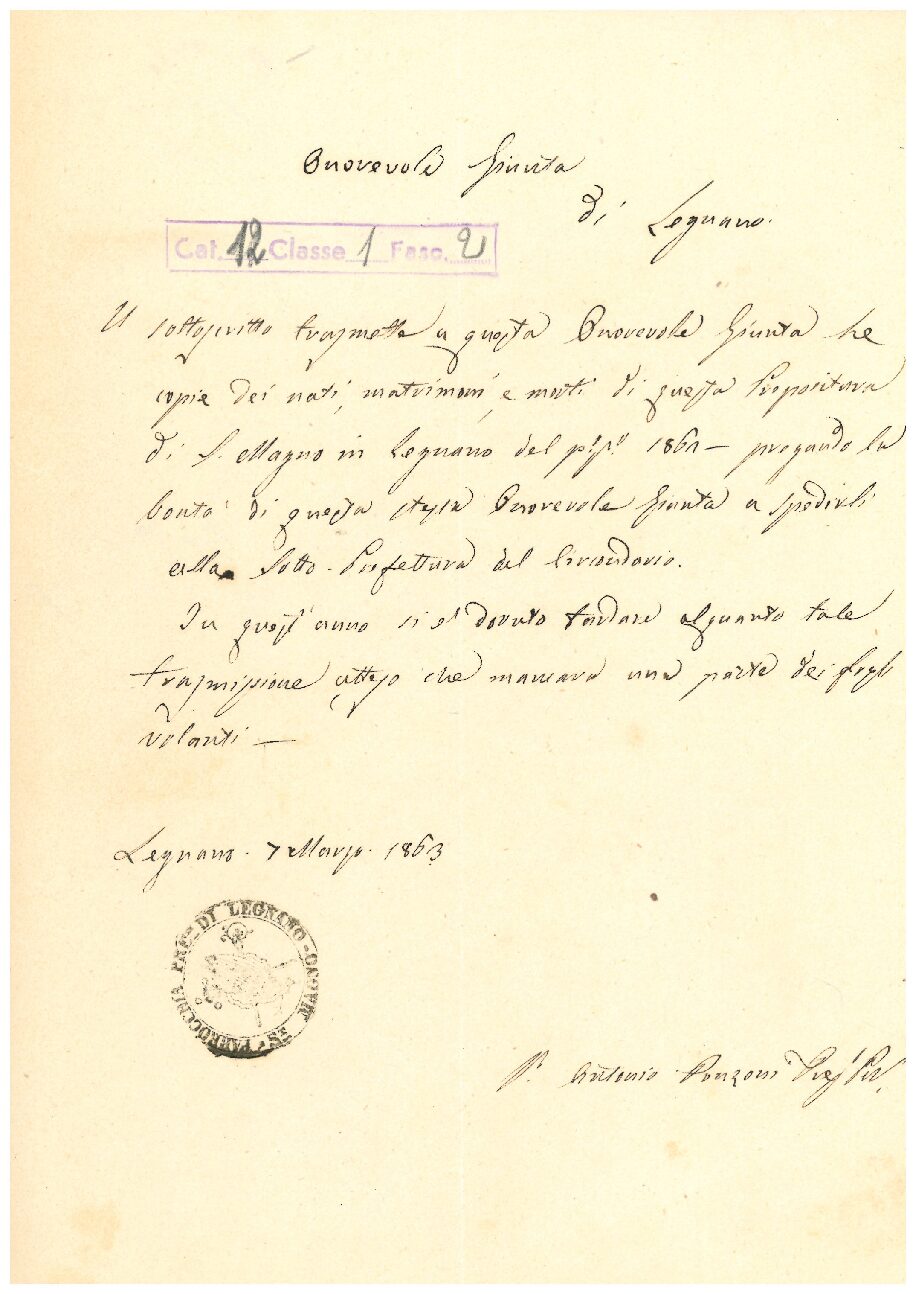 Onorevole Giunta
di Legnano.
Cat. 12 Classe 1 Fasc. 2
Il sottoscritto trasmette a questa Onorevole Giunta le
copie dei nati, matrimoni, e morti di questa Prepositura
di S. Magno in Legnano del 186 — pregando la
bontà di questa stessa Onorevole Giunta a spedirli
alla Sotto-Prefettura del Circondario.
In quest'anno si è dovuto tardare alquanto tale
trasmissione atteso che mancava una parte dei fogli
volanti —
Legnano. 7 Marzo. 1863
PARROCCHIA DI LEGNANO
P. Antonio Ponzoni